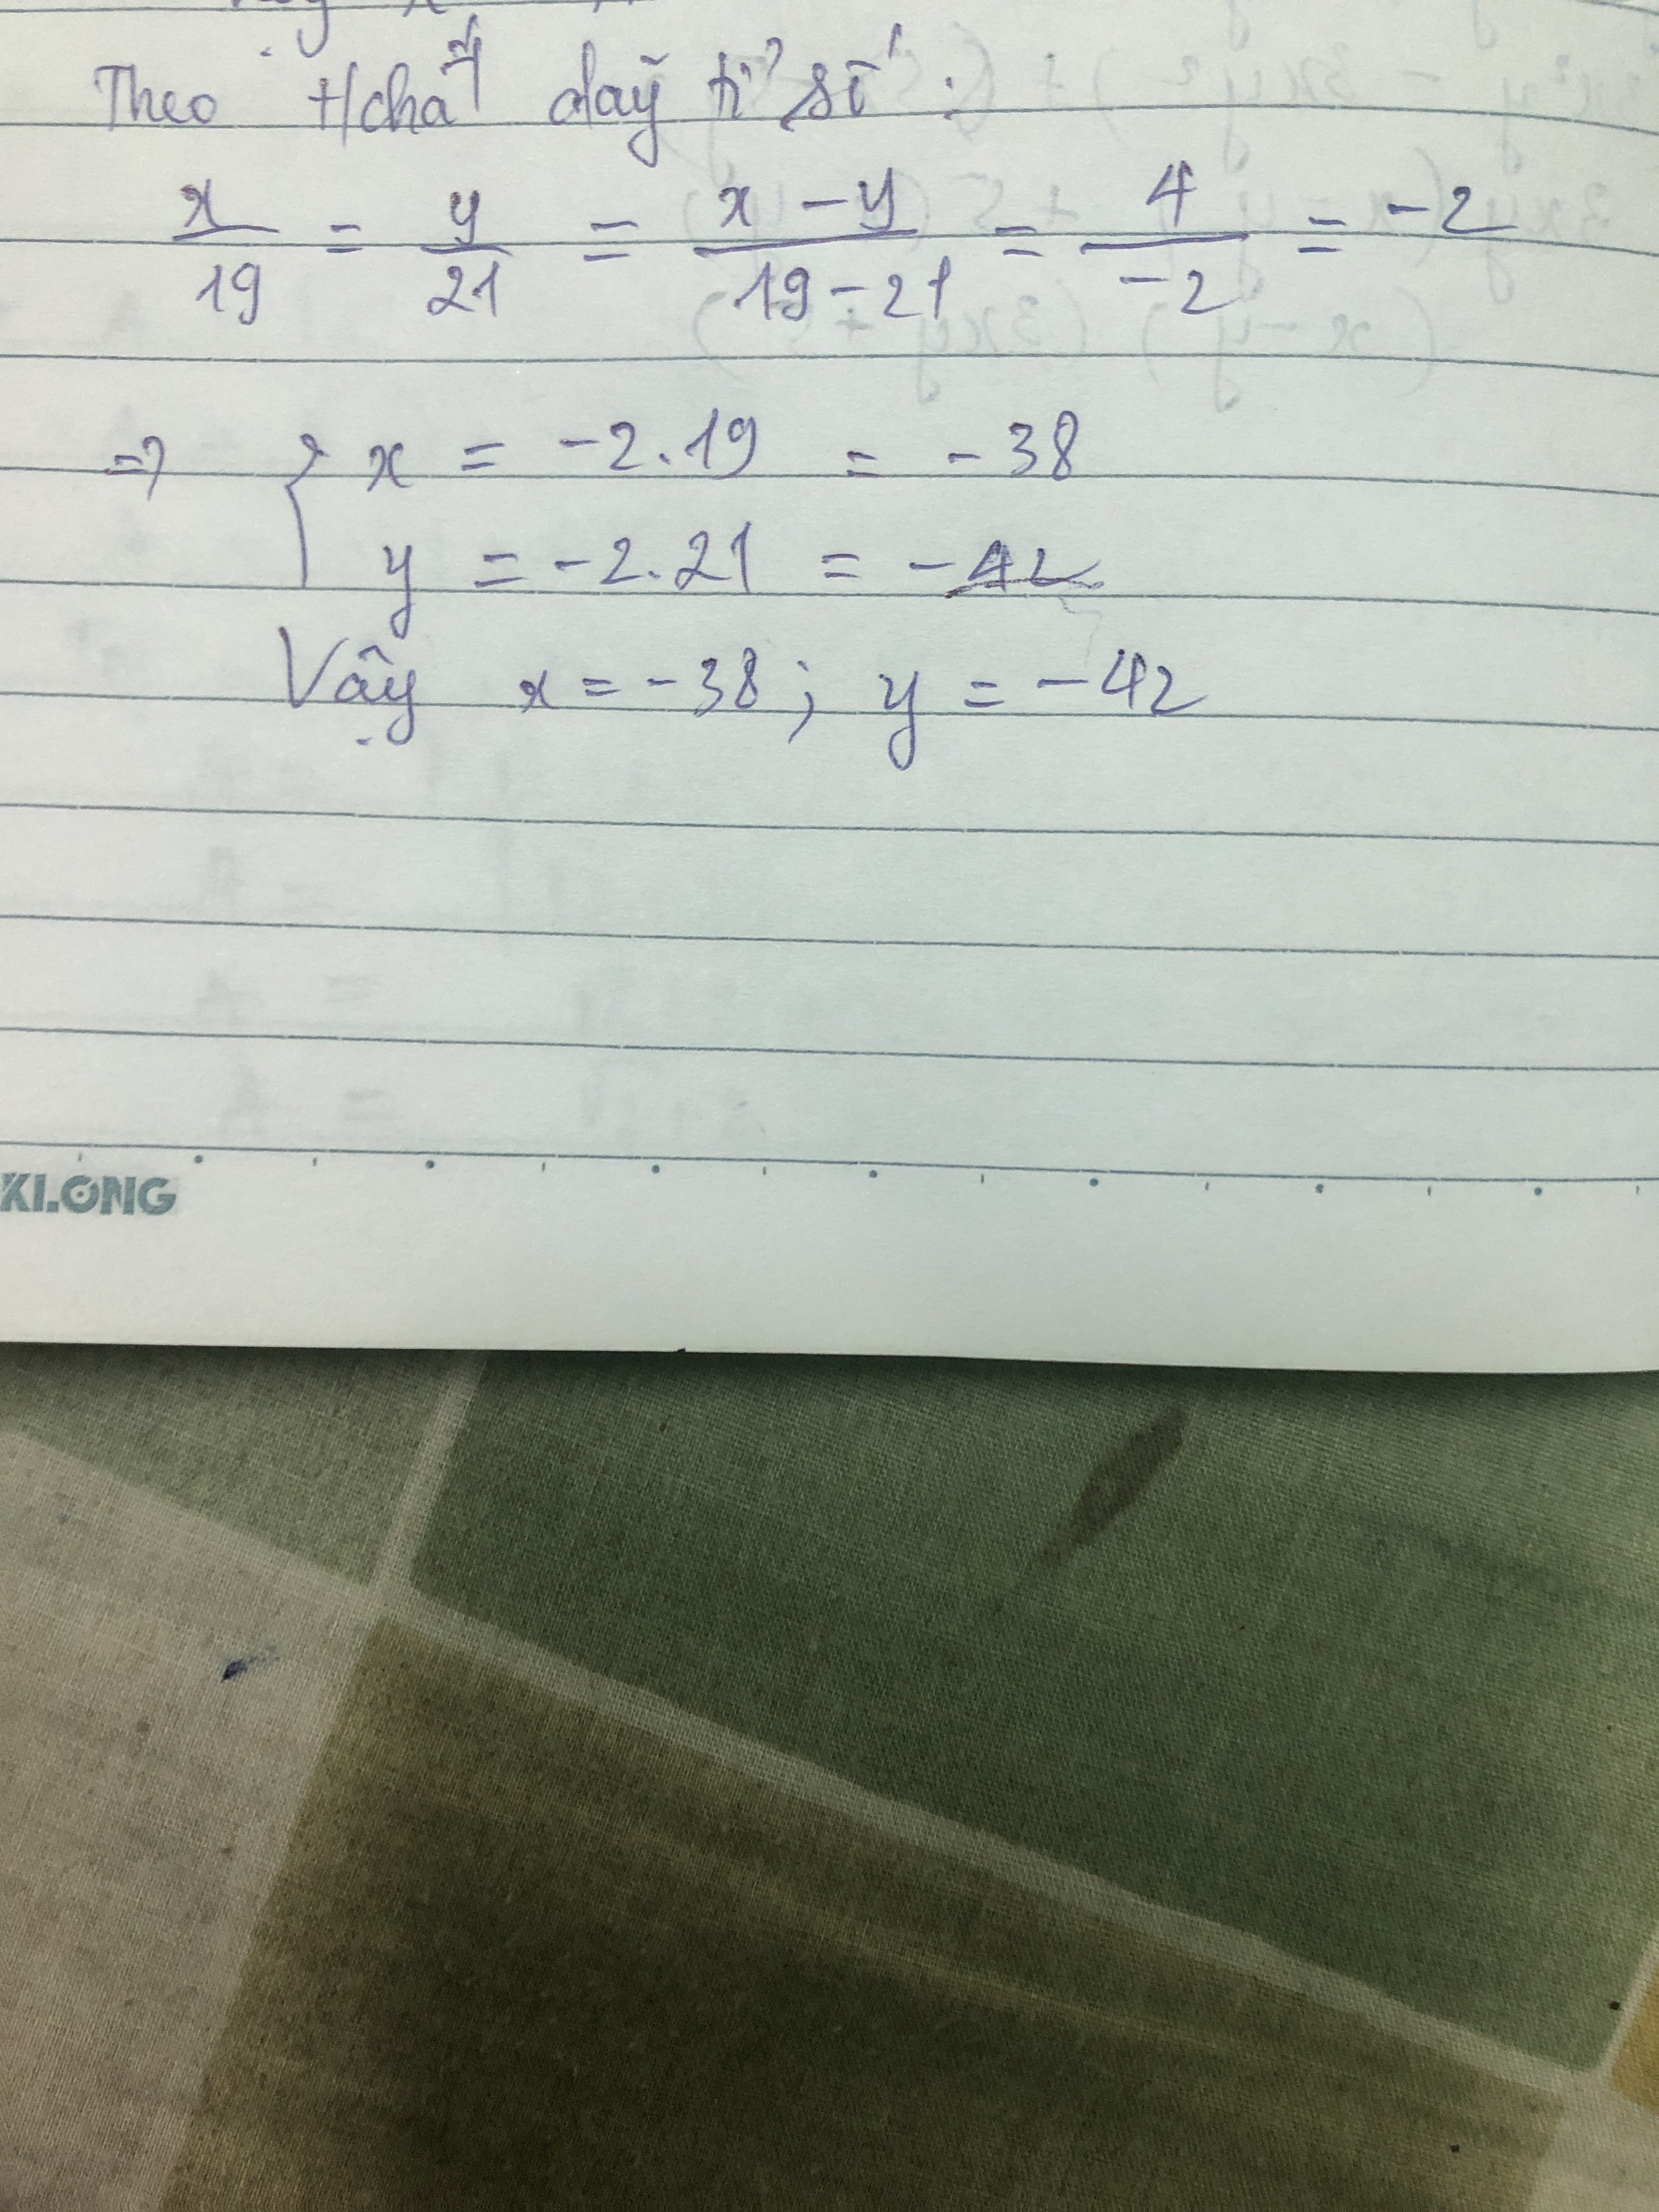 Theo t/chất dãy tỉ số :
x/19 = y/21 = x - y/19 - 21 = 4/-2 = -2
=> { x = -2.19 = -38
y = -2.21 = -42
Vậy x = -38 ; y = -42
KLONG